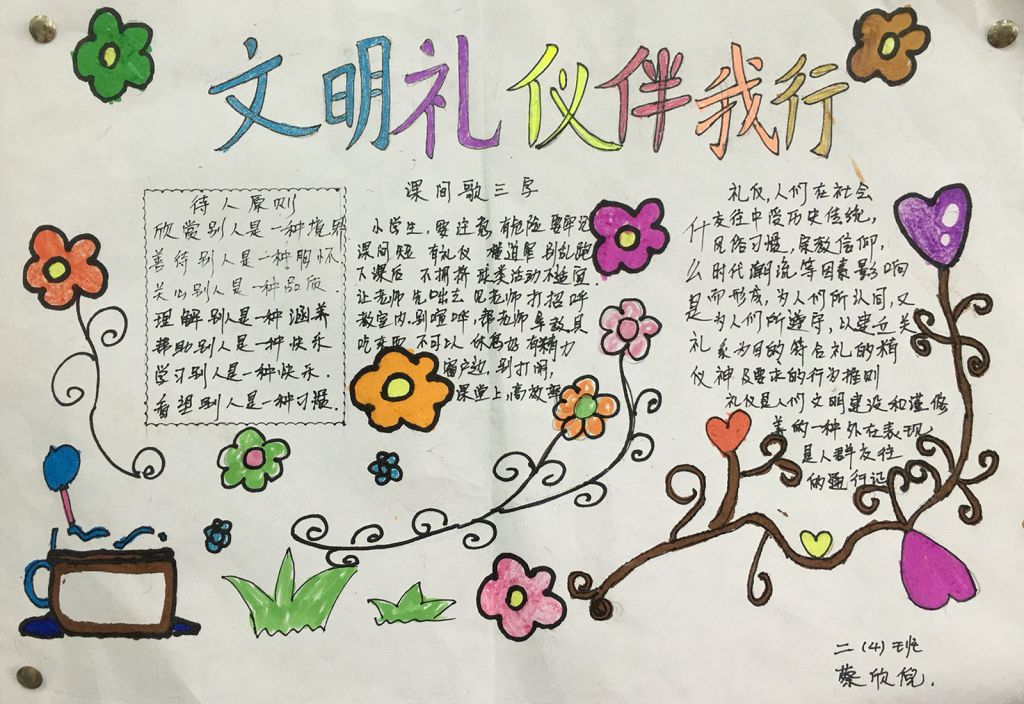 文明礼仪伴我行
待人原则
欣赏别人是一种境界
善待别人是一种胸怀
关心别人是一种品质
理解别人是一种涵养
帮助别人是一种快乐
学习别人是一种快乐.
看望别人是一种习惯.
课间歌三字
小学生,要注意,有危险要牢记
课间短 有礼仪 楼道里 别乱跑
下课后 不拥挤 球类活动不适宜
让老师 先咄去 见老师 打招呼
教室内,别喧哗,帮老师 拿教具
吃东西 不可以 休息好 有精力
窗户边,别打闹,
课堂上,高效率
礼仪,人们在社会
什交往中受历史传统,
风俗习惯,宗教信仰,
么时代潮流等因素影响
是而形成,为人们所认同,又
为人们所遵守,以建立关
礼 系为目的符合礼的精
仪神及要求的行为准则
礼仪是人们文明建设和谨修
养的一种外在表现
是人群交往
的通行证
二(4)班
蔡欣倪.